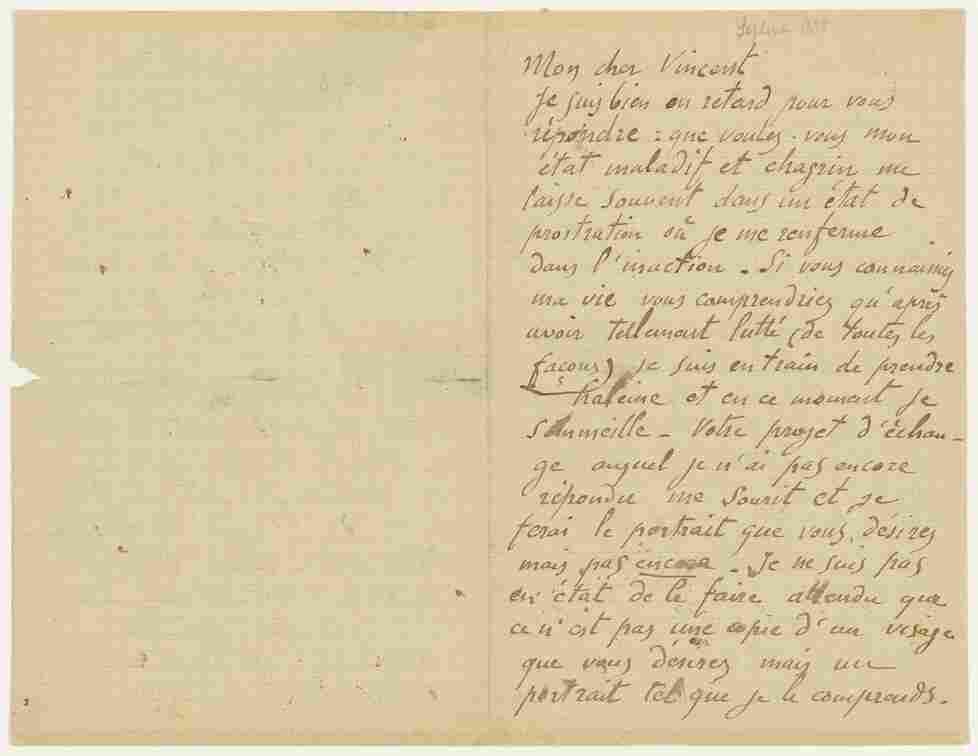 Mon cher Vincent
Je suis bien en retard pour vous
répondre : que voulez-vous mon
état maladif et chagrin me
laisse souvent dans un état de
prostration où je me renferme
dans l'inaction. Si vous connaissiez
ma vie vous comprendriez qu'après
avoir tellement lutté (de toutes les
façons) je suis en train de prendre
haleine et en ce moment je
sommeille - Votre projet d'échan-
ge auquel je n'ai pas encore
répondu me sourit et je
ferai le portrait que vous désirez
mais pas encore. Je ne suis pas
en état de le faire attendu que
ce n'est pas une copie d'un visage
que vous désirez mais un
portrait tel que je le comprends.